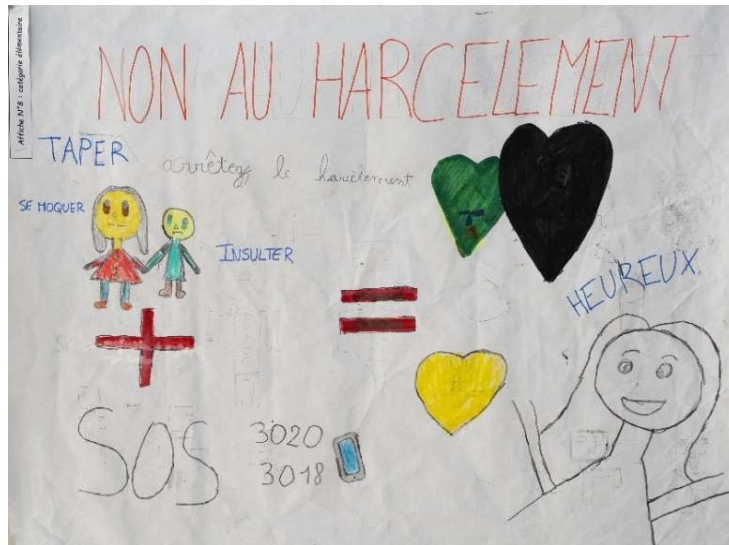 Affiche N°8 : catégorie élémentaire
NON AU HARCELEMENT
TAPER
arrêtez le harcèlement
SE MOQUER
INSULTER
HEUREUX
SOS
3020
3018